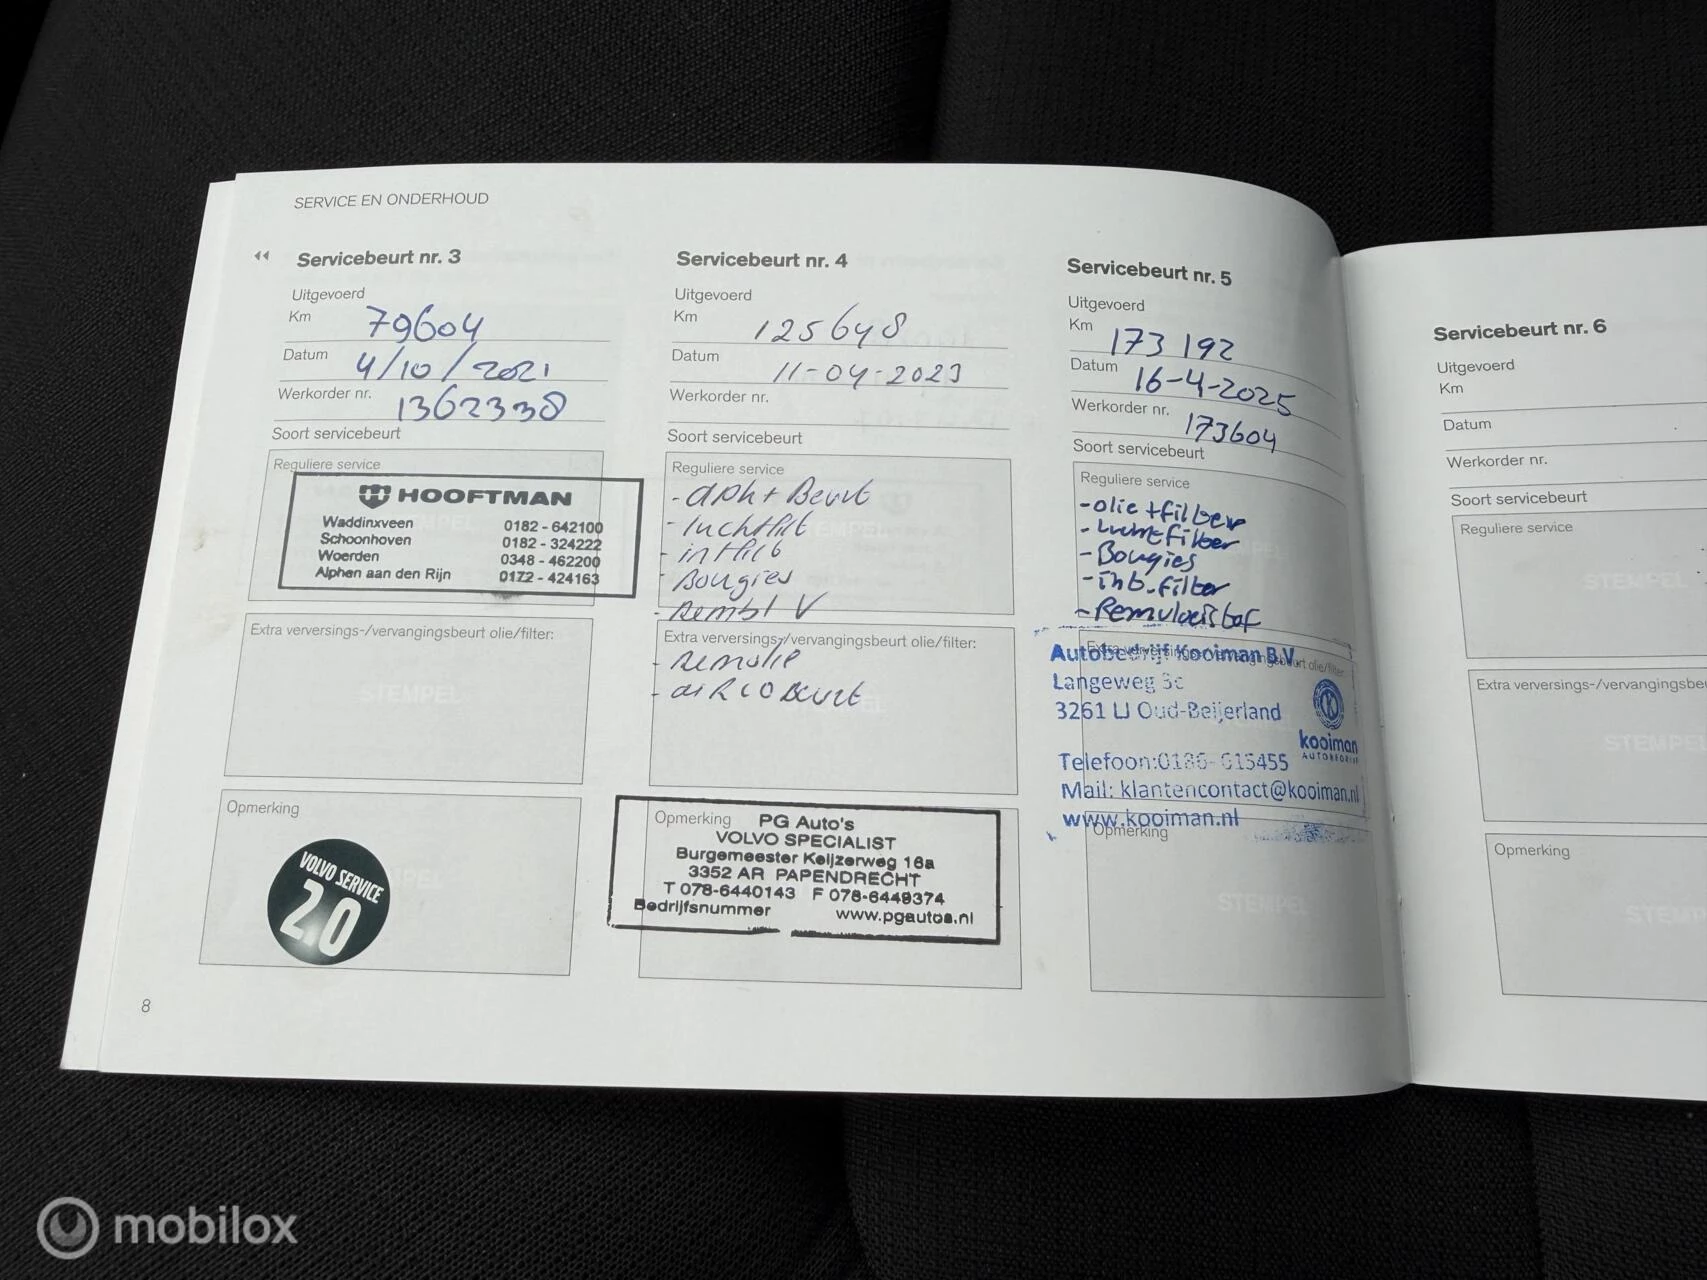 SERVICE EN ONDERHOUD
Servicebeurt nr. 3
Uitgevoerd
Km 79604
Datum 4/10/2021
Werkorder nr. 1362338
Soort servicebeurt
Reguliere service
HOOFTMAN
Waddinxveen 0182 - 642100
Schoonhoven 0182 - 324222
Woerden 0348 - 462200
Alphen aan den Rijn 0172 - 424163
Extra verversings-/vervangingsbeurt olie/filter:
STEMPEL
Opmerking
VOLVO SERVICE
2.0
8
Servicebeurt nr. 4
Uitgevoerd
Km 125648
Datum 11-04-2023
Werkorder nr.
Soort servicebeurt
Reguliere service
- Beurt
- luchtfilt
- intfilt
- Bougies
- Rembl V
Extra verversings-/vervangingsbeurt olie/filter:
- Remolie
- airco Beurt
Opmerking
PG Auto's
VOLVO SPECIALIST
Burgemeester Keijzerweg 16a
3352 AR PAPENDRECHT
T 078-6440143 F 078-6449374
Bedrijfsnummer www.pgautos.nl
Servicebeurt nr. 5
Uitgevoerd
Km 173 192
Datum 16-4-2025
Werkorder nr. 173604
Soort servicebeurt
Reguliere service
- olie + filter
- Luchtfilter
- Bougies
- int.filter
- Remvloeistof
Extra verversings-/vervangingsbeurt olie/filter:
Autobedrijf Kooiman B.V.
Langeweg 3c
3261 LJ Oud-Beijerland
kooiman
AUTOBEDRIJF
Telefoon:0186-615455
Mail: klantencontact@kooiman.nl
www.kooiman.nl
Opmerking
STEMPEL
Servicebeurt nr. 6
Uitgevoerd
Km
Datum
Werkorder nr.
Soort servicebeurt
Reguliere service
STEMPEL
Extra verversings-/vervangingsbeu
STEMPE
Opmerking
STEM
mobilox